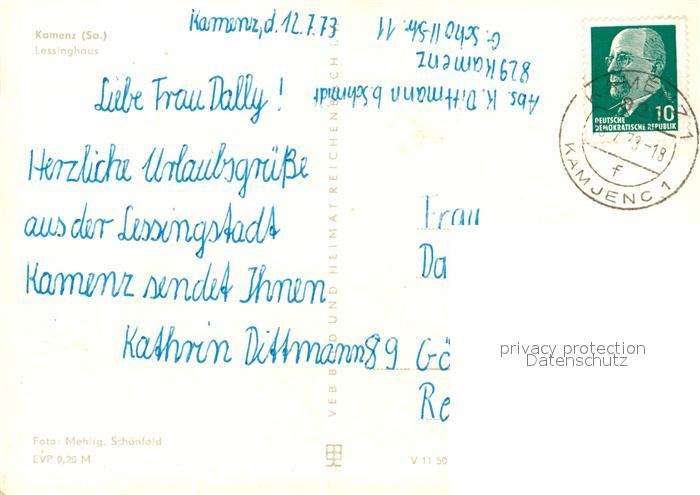 Kamenz (Sa.)
Lessinghaus
Kamenz, d. 12.7.73
Liebe Frau Dally!
Herzliche Urlaubsgrüße
aus der Lessingstadt
Kamenz sendet Ihnen
Kathrin Dittmann
Abs. K. Dittmann b. Schmidt
829 Kamenz
G. Scholl-Str. 11
10
DEUTSCHE
DEMOKRATISCHE REPUBLIK
73-18
f
KAMJENC 1
Frau
Da
89 Gö
Re
privacy protection
Datenschutz
VEB BILD UND HEIMAT REICHENBACH I.
Foto: Mehlig, Schönfeld
EVP 0,20 M
V 11 50